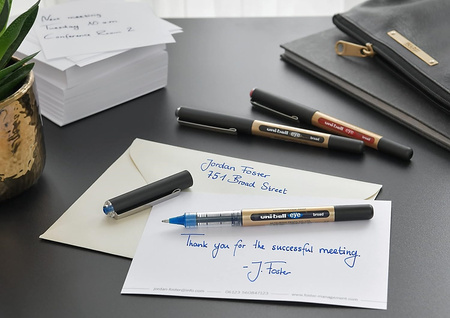 New meeting
Tuesday 10 am
Conference Room 2
uni-ball eye broad
uni-ball eye broad
Jordan Foster
751 Broad Street
uni-ball eye broad
Thank you for the successful meeting
- J. Foster